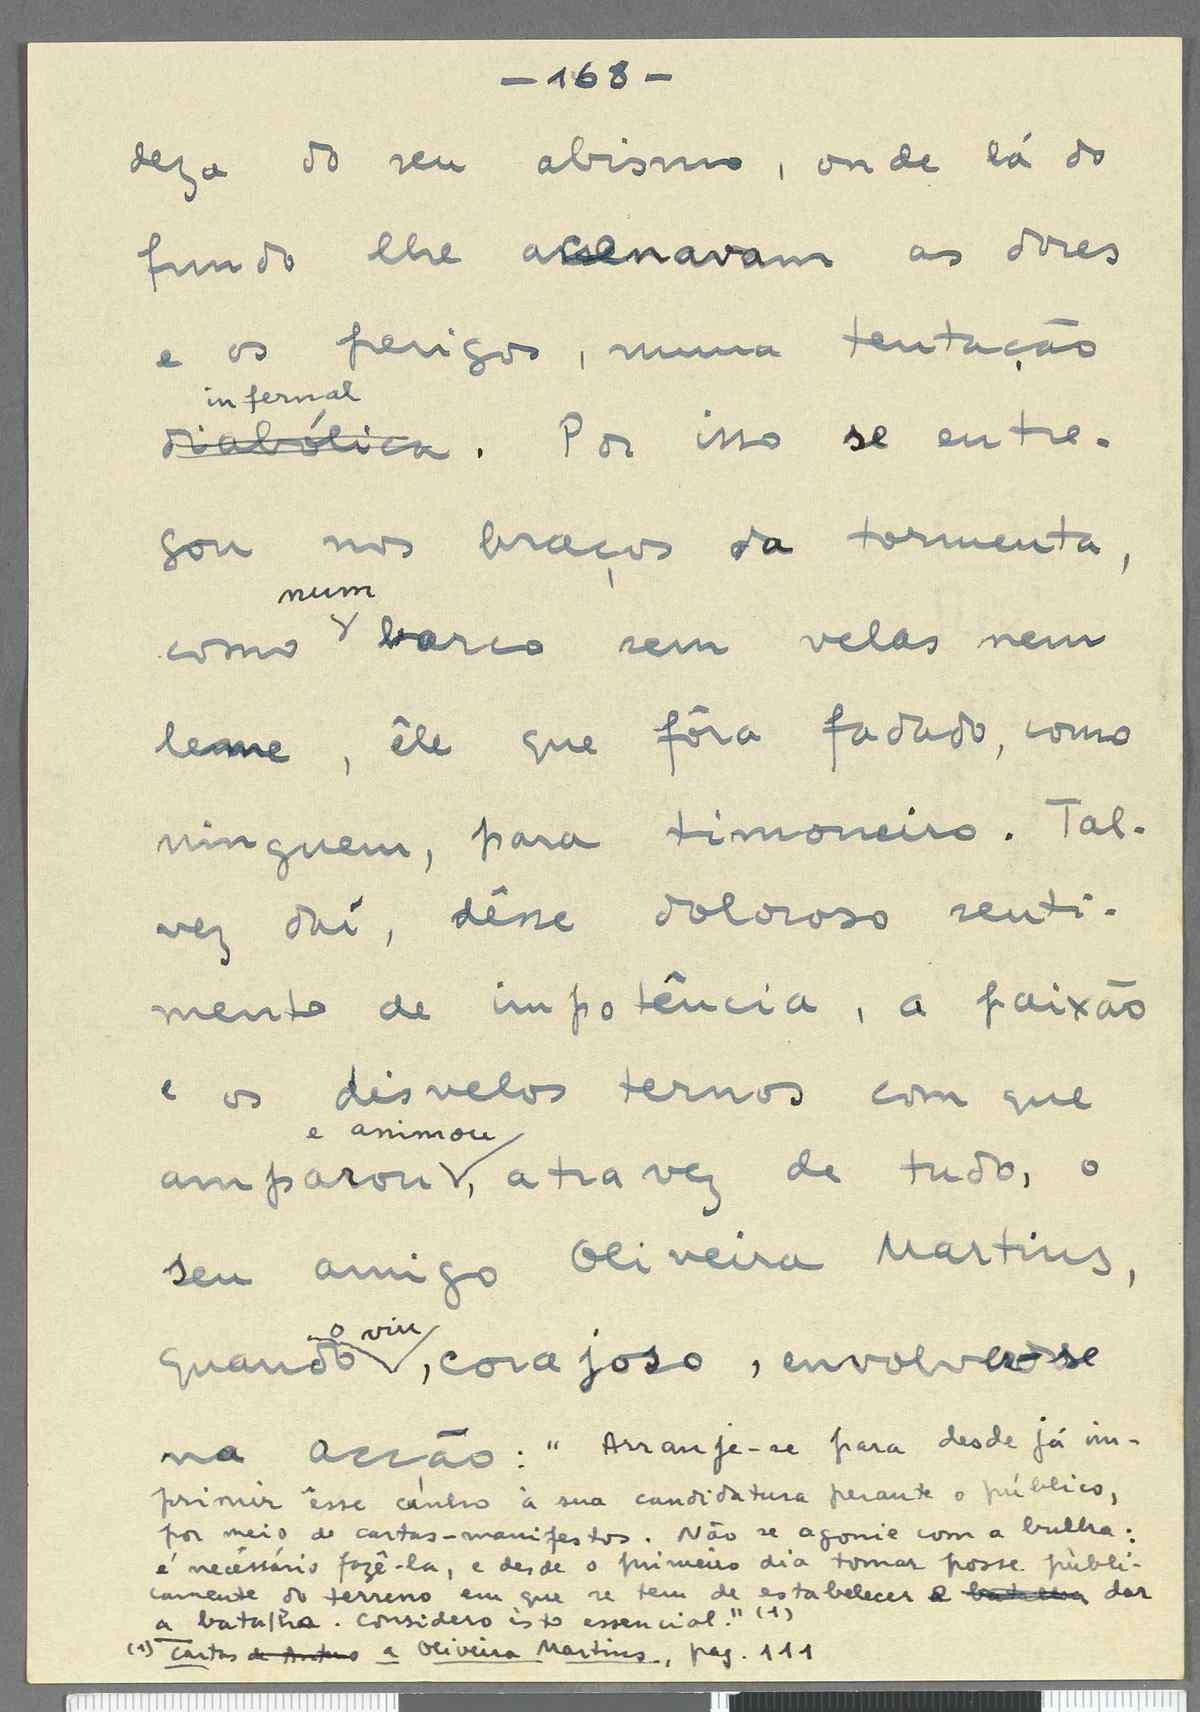 — 168 —
deza do seu abismo, onde lá do
fundo lhe acenavam as dores
e os perigos, numa tentação
infernal
diabólica. Por isso se entre-
gou nos braços da tormenta,
num
como barco sem velas nem
leme, êle que fôra fadado, como
ninguem, para timoneiro. Tal-
vez daí, dêsse doloroso senti-
mento de impotência, a paixão
e os disvelos ternos com que
e animou
amparou, atravez de tudo, o
seu amigo Oliveira Martins,
o viu
quando, corajoso, envolver-se
na acção: " Arranje-se para desde já im-
primir êsse cunho à sua candidatura perante o público,
por meio de cartas-manifestos. Não se agonie com a bulha:
é necessário fazê-la, e desde o primeiro dia tomar posse públi-
camente do terreno em que se tem de estabelecer e batalha dar
a batalha. Considero isto essencial." (1)
(1) Cartas de Antero a Oliveira Martins, pag. 111